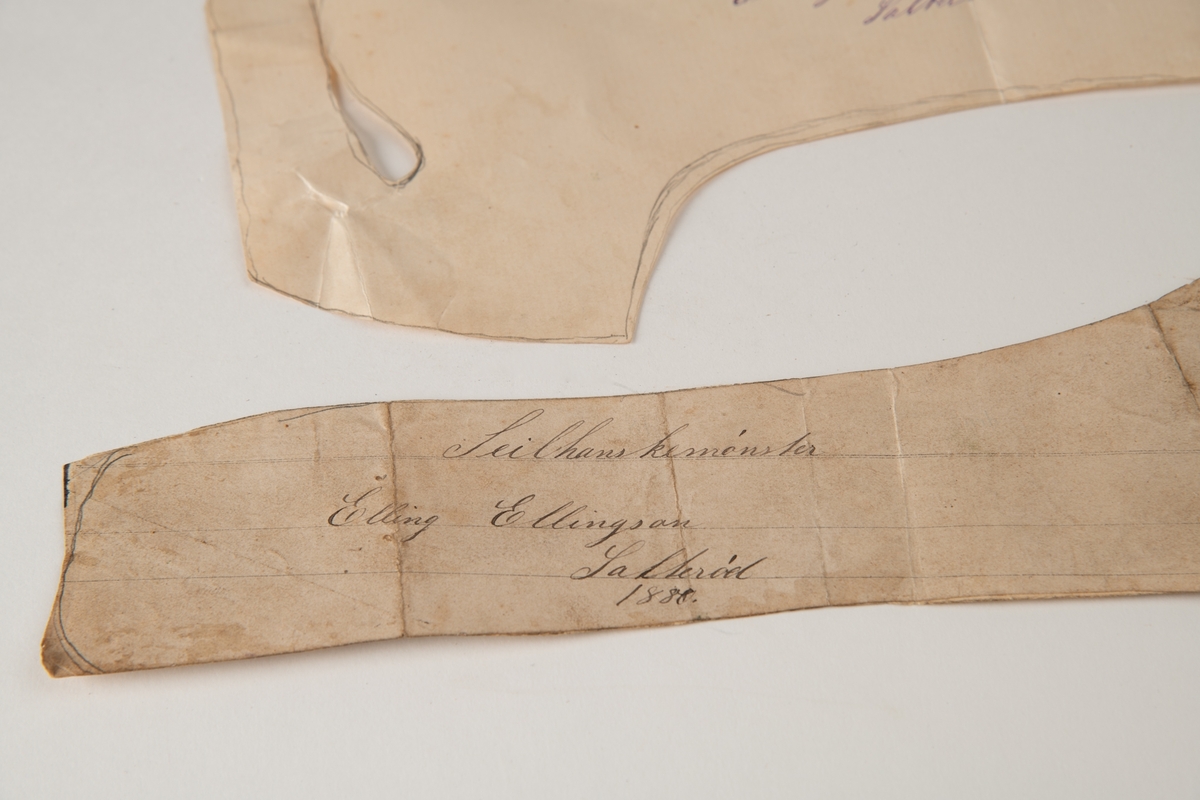 Seilhanskemönster
Elling Ellingson
Salteröd
1880.